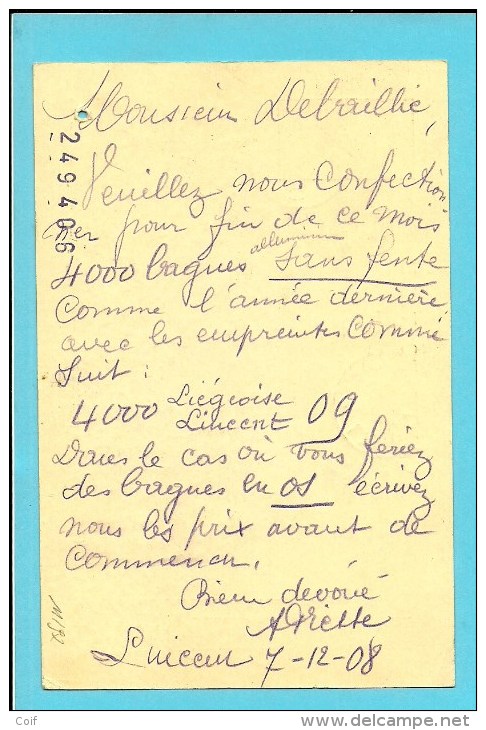 Monsieur Debraillie,
Veuillez nous confection
ner pour fin de ce mois
alluminium
4000 bagues sans fente
comme l'année dernière
avec les empreintes comme
suit :
4000 Liégeoise 09
Lincent
Dans le cas où vous feriez
des bagues en os écrivez
nous les prix avant de
commencer.
Bien dévoué
Lincent 7-12-08
249406
Coif
© delcampe.net